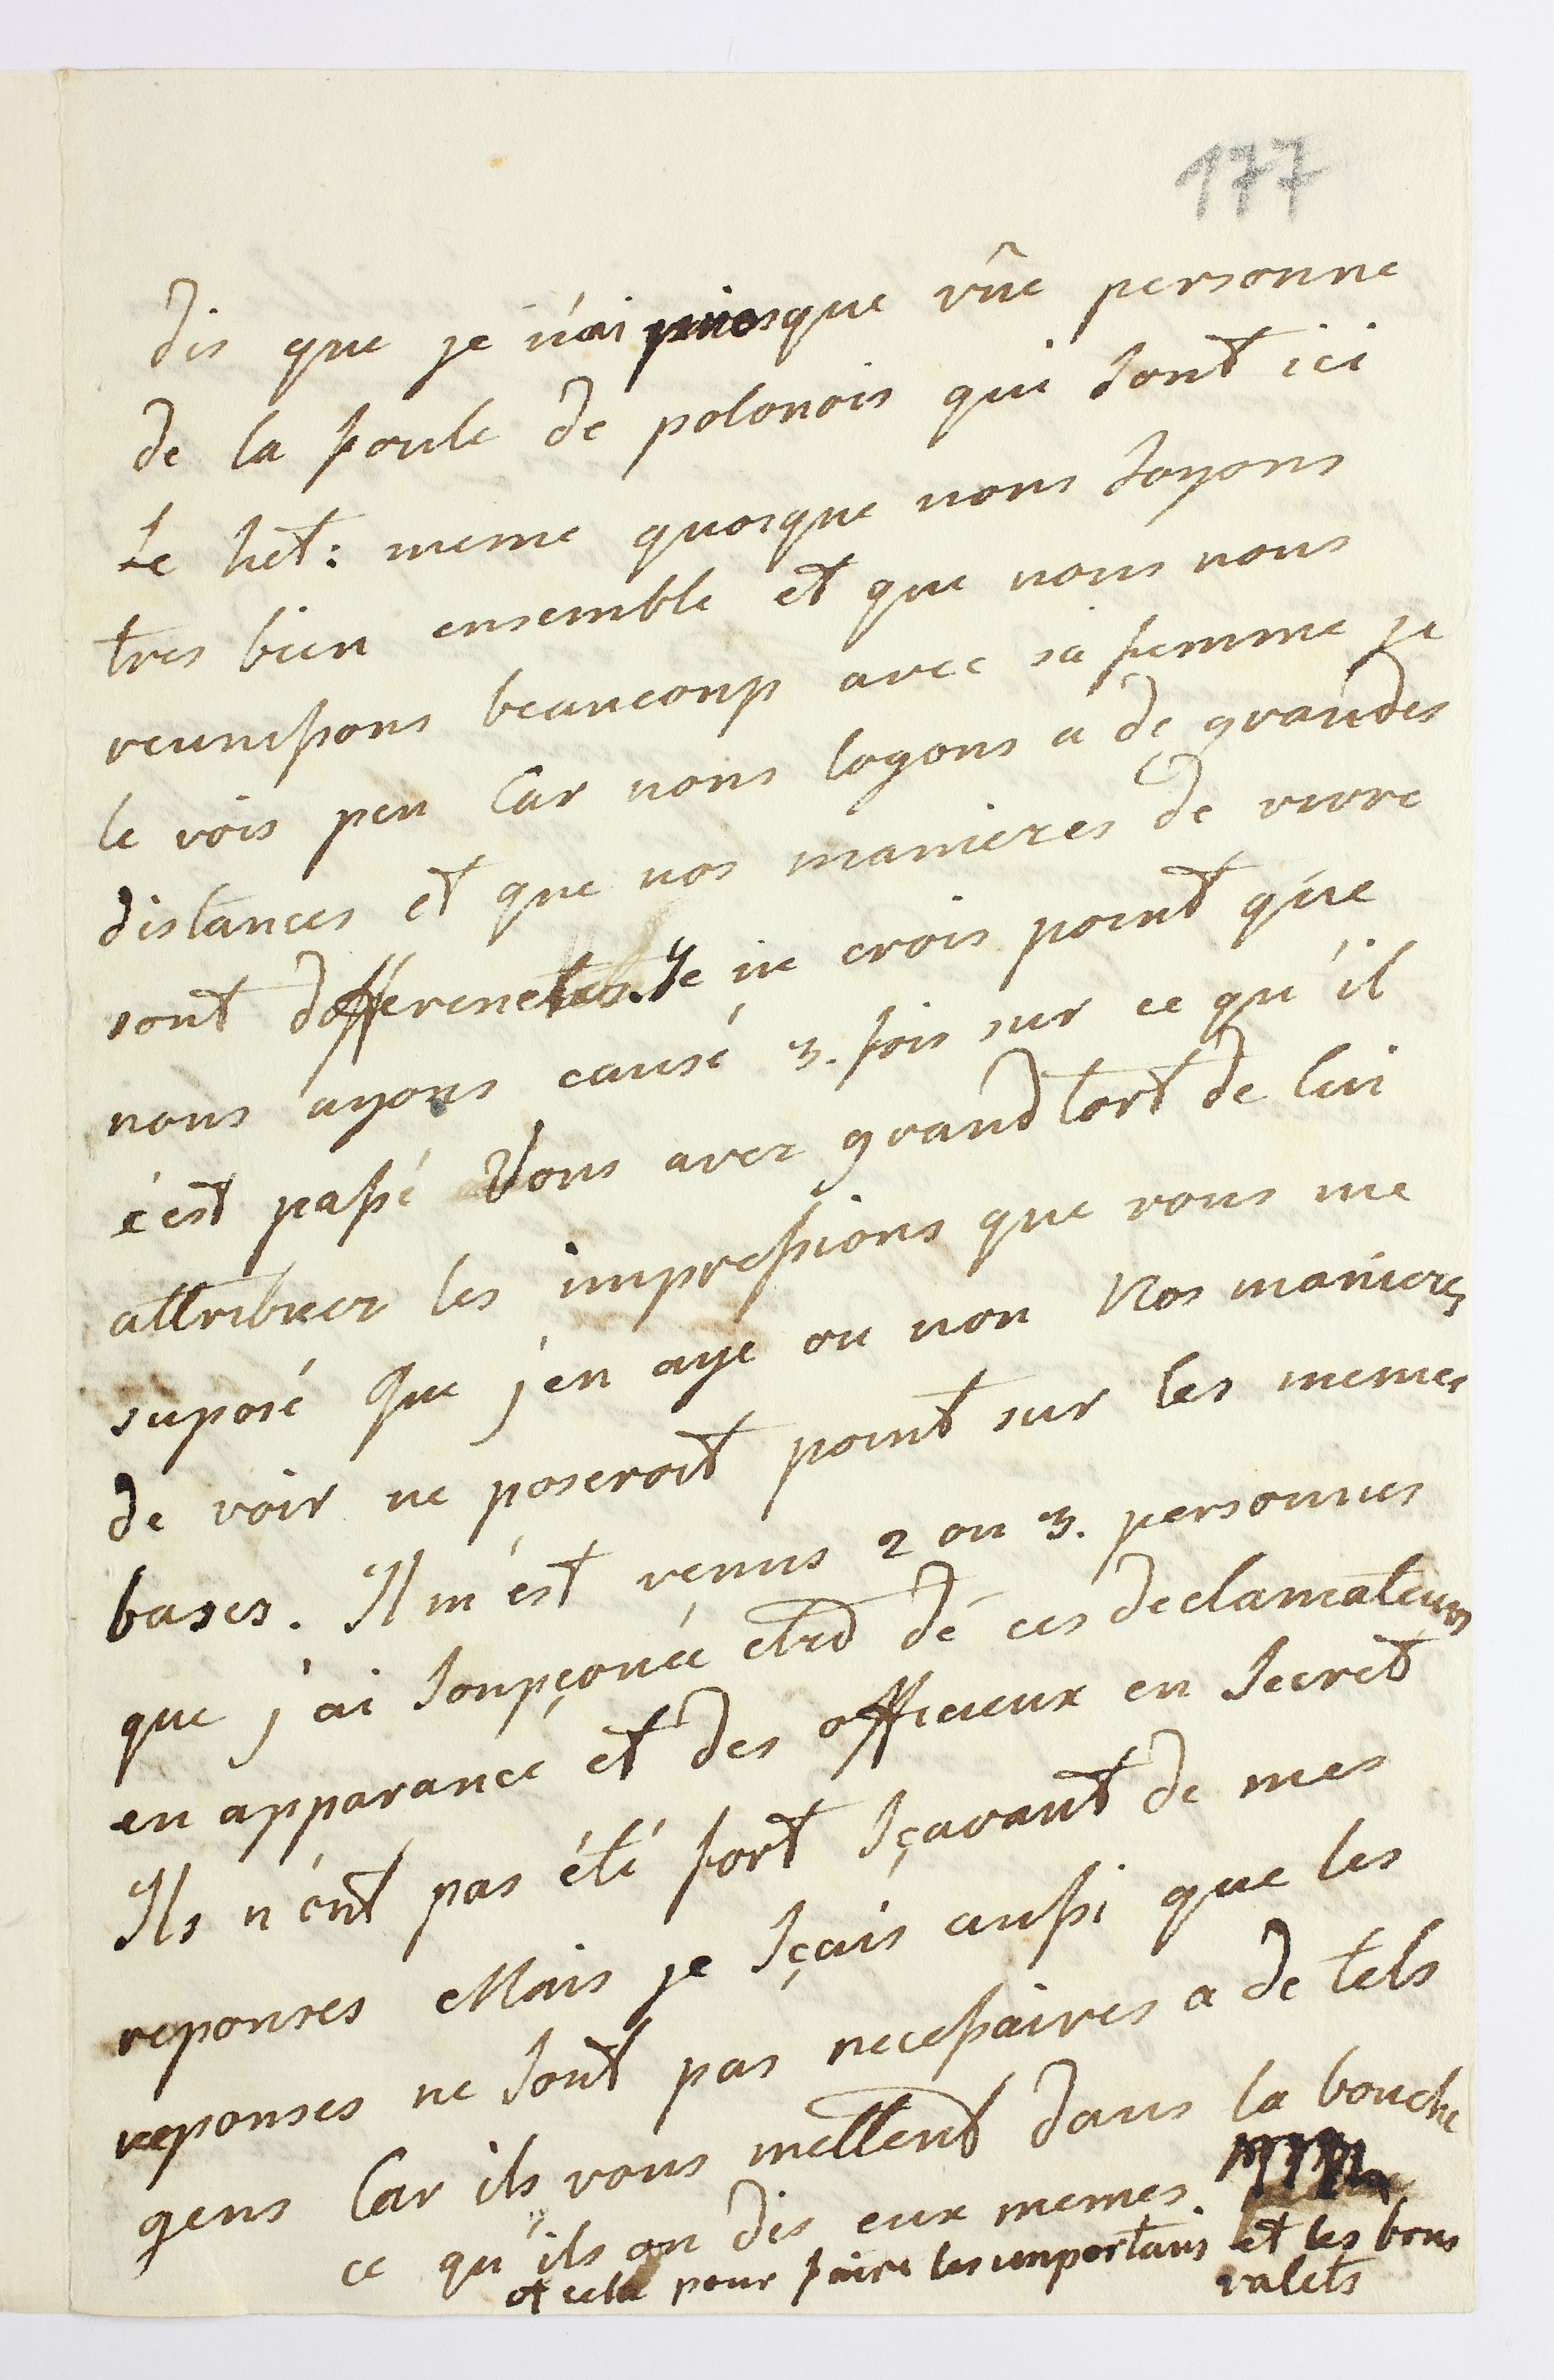 177
dis que je n'ai presque vûe personne
de la foule de polonois qui sont ici
Le het: meme quoique nous soyons
tres bien ensemble et que nous nous
reunissons beaucoup avec sa femme je
le vois peu Car nous logons a de grandes
distances et que nos manieres de vivre
sont differentes. Je ne crois point que
nous ayons causé 3. fois sur ce qu'il
c'est passé Vous avez grand tort de lui
attribuer les impressions que vous me
suposé que j'en aye ou non Nos manieres
de voir ne poseroit point sur les memes
bases. Il m'est venus 2 ou 3. personnes
que j'ai soupçonée etre de ces declamateurs
en apparance et des officieux en secret
Ils n'ont pas été fort sçavant de mes
reponses Mais je sçais aussi que les
reponses ne sont pas necessaires a de tels
gens Car ils vous mettent dans la bouche
ce qu'ils on dis eux memes.
et cela pour faire les importans et les bons
valets